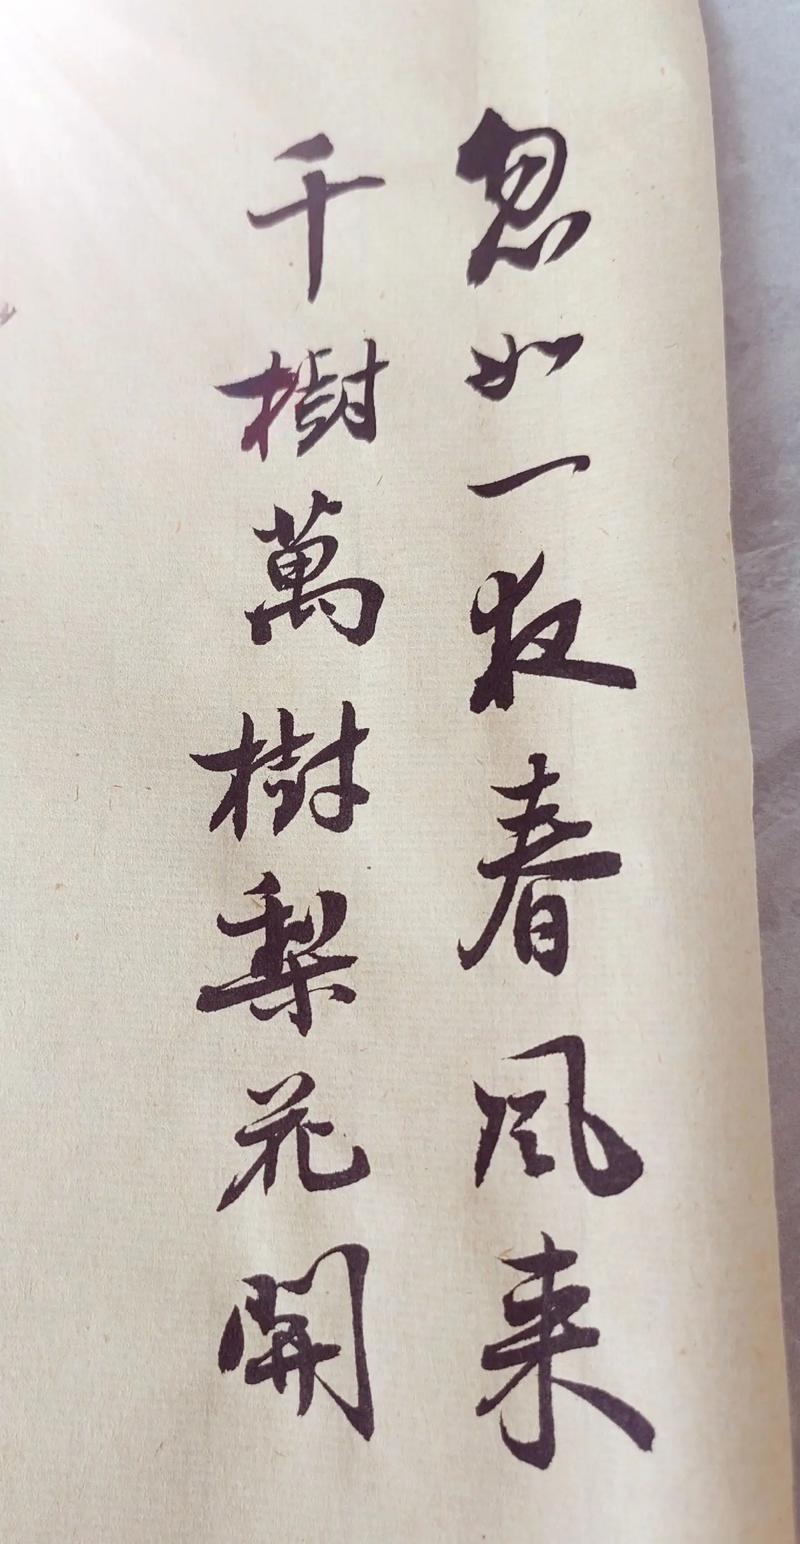 忽如一夜春风来
千樹萬樹梨花開